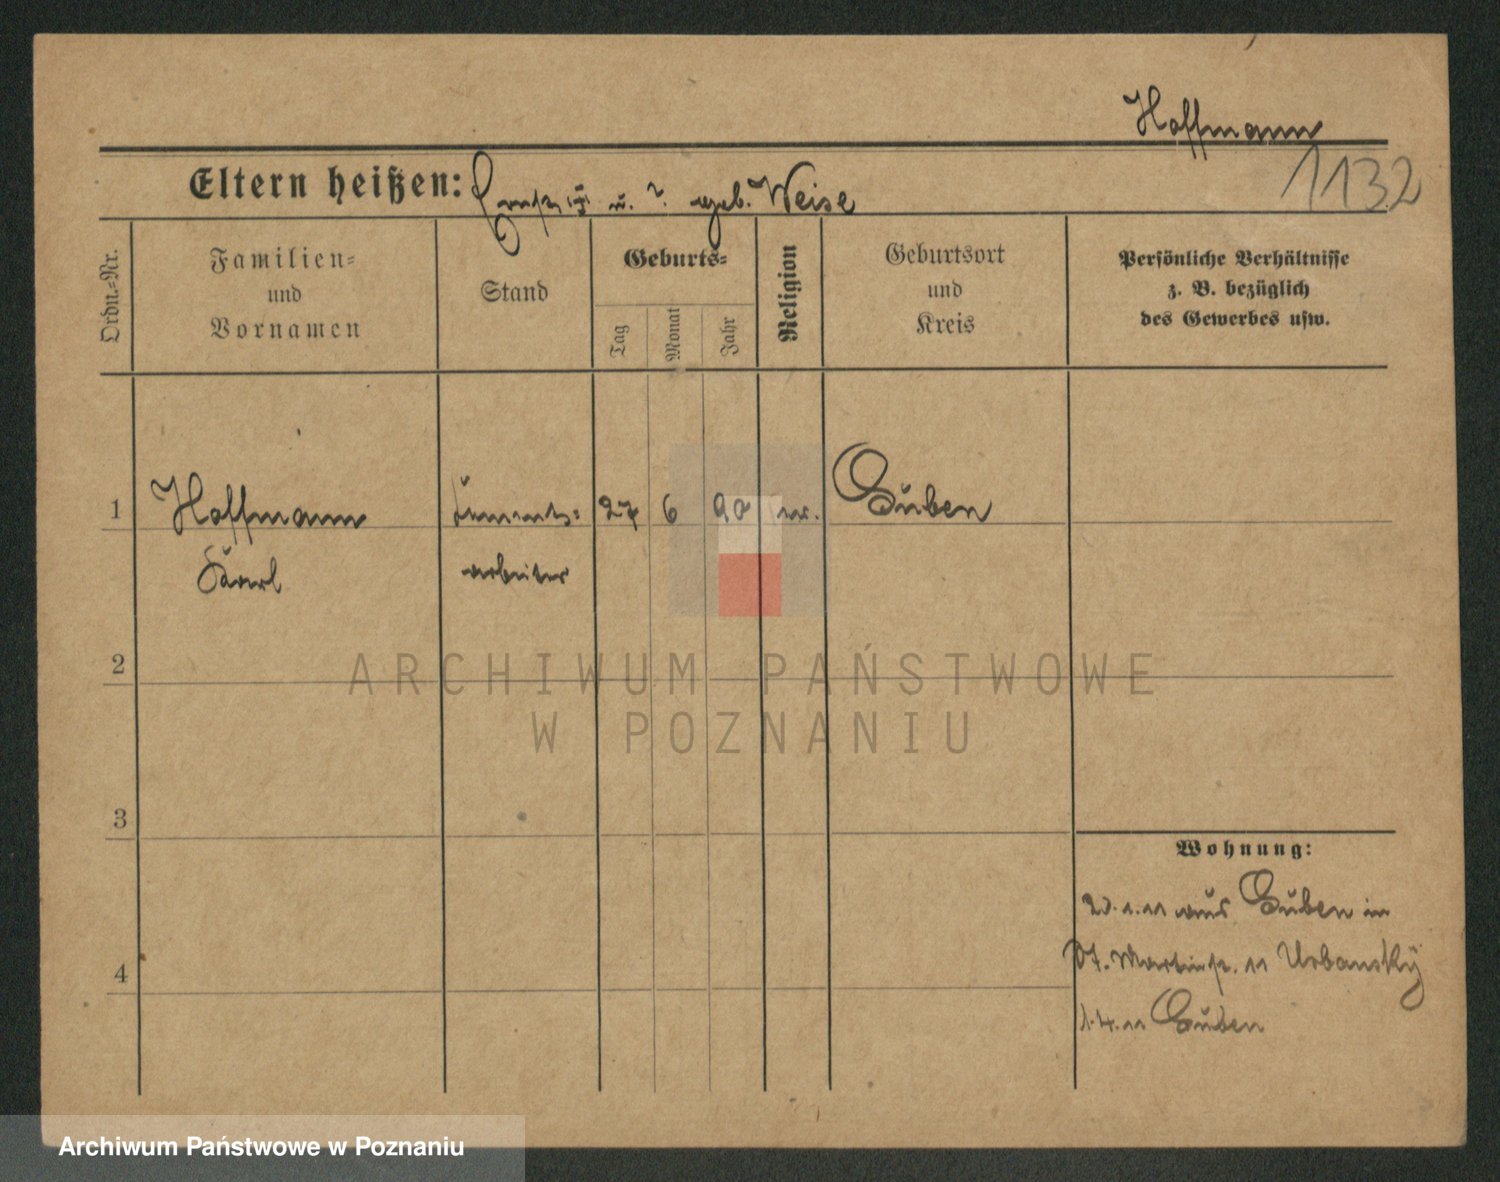 Hoffmann
1132
Eltern heißen: u. ? geb. Weise
Ordn.-Nr.
Familien- und Vornamen
Stand
Geburts-
Tag
Monat
Jahr
Religion
Geburtsort und Kreis
Persönliche Verhältnisse
z. B. bezüglich
des Gewerbes usw.
1 Hoffmann 27 6 90 Guben
Karl arbeiter
2
3
4
Wohnung:
aus Guben in
St. Martinstr. 11 Urbansky
1.4.11 Guben
ARCHIWUM PAŃSTWOWE
W POZNANIU
Archiwum Państwowe w Poznaniu